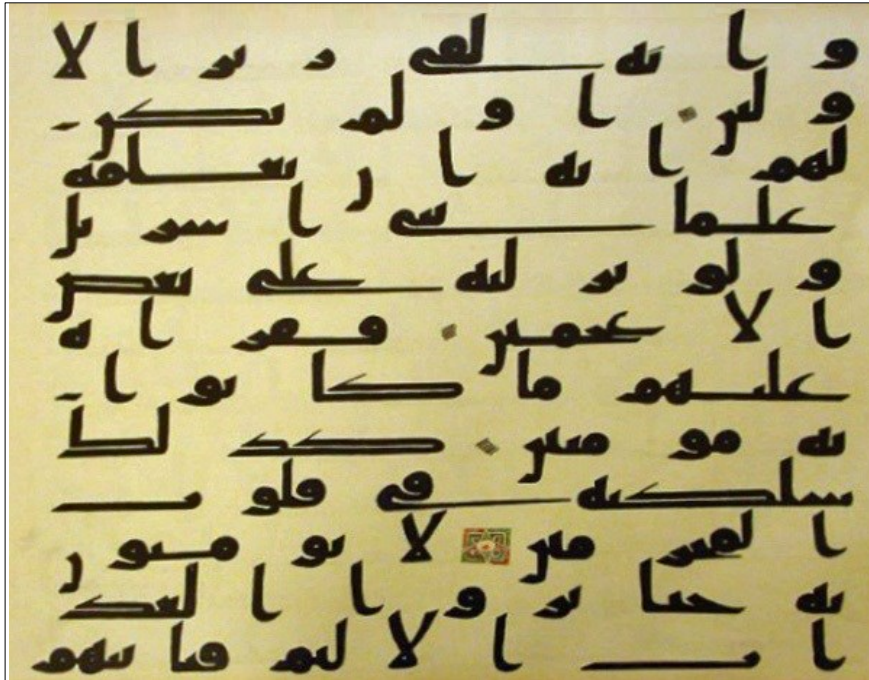 وانه لفى زبر الا
ولين اولم يكن
لهم ايه ان يعلمه
علما بنى اسريل
ولو نزلنه على بعض
الاعجمين فقراه
عليهم ما كانوا
به مومنين كذلك
سلكنه فى قلوب
المجرمين لا يومنون
به حتى يروا العذ
اب الاليم فياتيهم